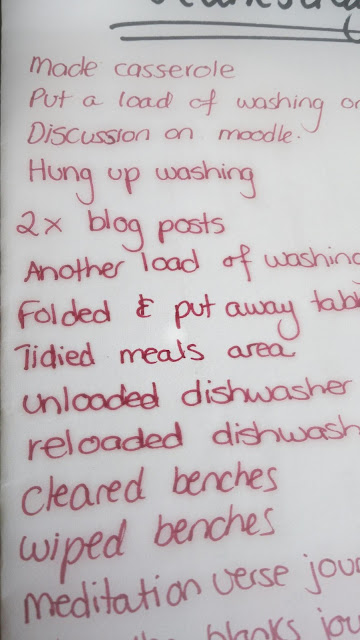 made casserole
Put a load of washing on
Discussion on moodle.
Hung up washing
2x blog posts
Another load of washing
Folded & put away
Tidied meals area
unloaded dishwasher
reloaded
cleared benches
wiped benches
meditation verse
blanks